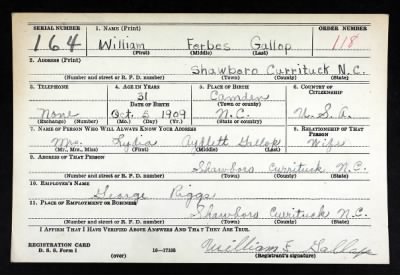 SERIAL NUMBER 1. NAME (Print) ORDER NUMBER
164 William Forbes Gallop 118
(First) (Middle) (Last)
2. ADDRESS (Print)
Shawboro Currituck N.C.
(Number and street or R. F. D. number) (Town) (County) (State)
3. TELEPHONE 4. AGE IN YEARS 5. PLACE OF BIRTH 6. COUNTRY OF CITIZENSHIP
31 Camden
DATE OF BIRTH (Town or county)
None Oct. 5 1909 N.C. U.S.A.
(Exchange) (Number) (Mo.) (Day) (Yr.) (State or country)
7. NAME OF PERSON WHO WILL ALWAYS KNOW YOUR ADDRESS 8. RELATIONSHIP OF THAT PERSON
Mrs. Aydlett Gallop Wife
(Mr., Mrs., Miss) (First) (Middle) (Last)
9. ADDRESS OF THAT PERSON
Shawboro Currituck N.C.
(Number and street or R. F. D. number) (Town) (County) (State)
10. EMPLOYER'S NAME
George Riggs
11. PLACE OF EMPLOYMENT OR BUSINESS
Shawboro Currituck N.C.
(Number and street or R. F. D. number) (Town) (County) (State)
I AFFIRM THAT I HAVE VERIFIED ABOVE ANSWERS AND THAT THEY ARE TRUE.
REGISTRATION CARD
D. S. S. Form 1 16-17105 William F. Gallop
(over) (Registrant's signature)